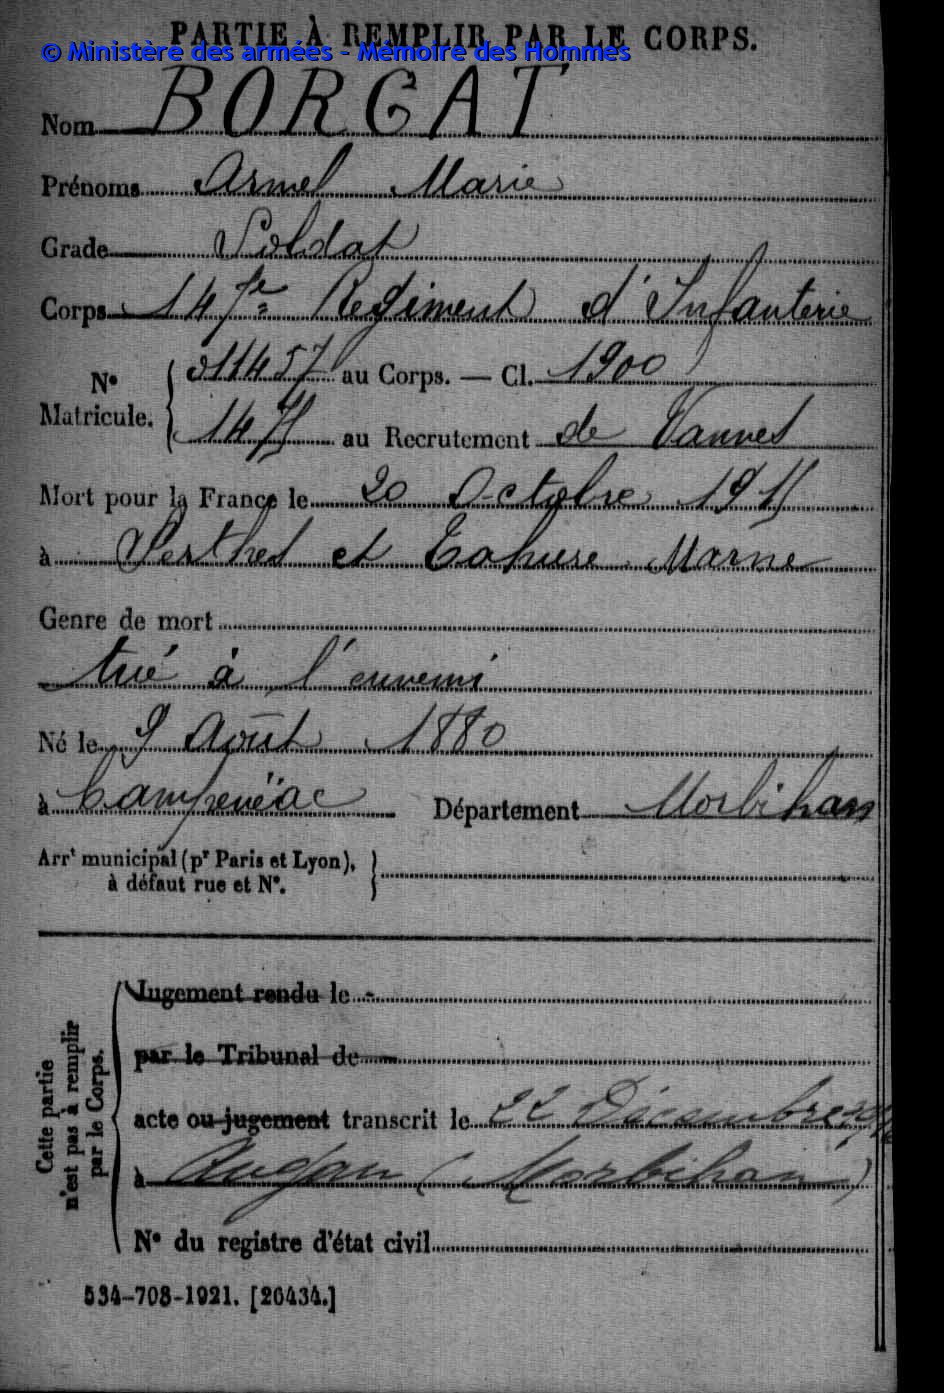 PARTIE À REMPLIR PAR LE CORPS.
© Ministère des armées - Mémoire des Hommes
Nom BORGAT
Prénoms Armel Marie
Grade Soldat
Corps 147e Régiment d'Infanterie
No Matricule. 011457 au Corps. — Cl. 1900
1475 au Recrutement de Vannes
Mort pour la France le 20 Octobre 1915
à Perthes et Tahure Marne
Genre de mort
tué à l'ennemi
Né le 9 Août 1880
à Campénéac Département Morbihan
Arrt municipal (pr Paris et Lyon),
à défaut rue et No.
Cette partie
n'est pas à remplir
par le Corps.
Jugement rendu le
par le Tribunal de
acte ou jugement transcrit le 22 Décembre
à Augan (Morbihan)
No du registre d'état civil
534-708-1921. [26434.]